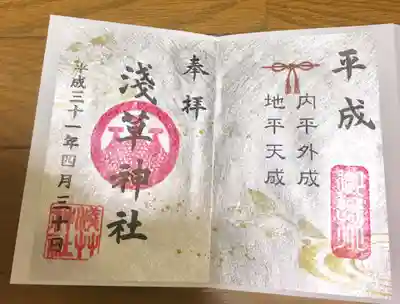 平成
内平外成
地平天成
奉拝
淺草神社
平成三十一年四月三十日